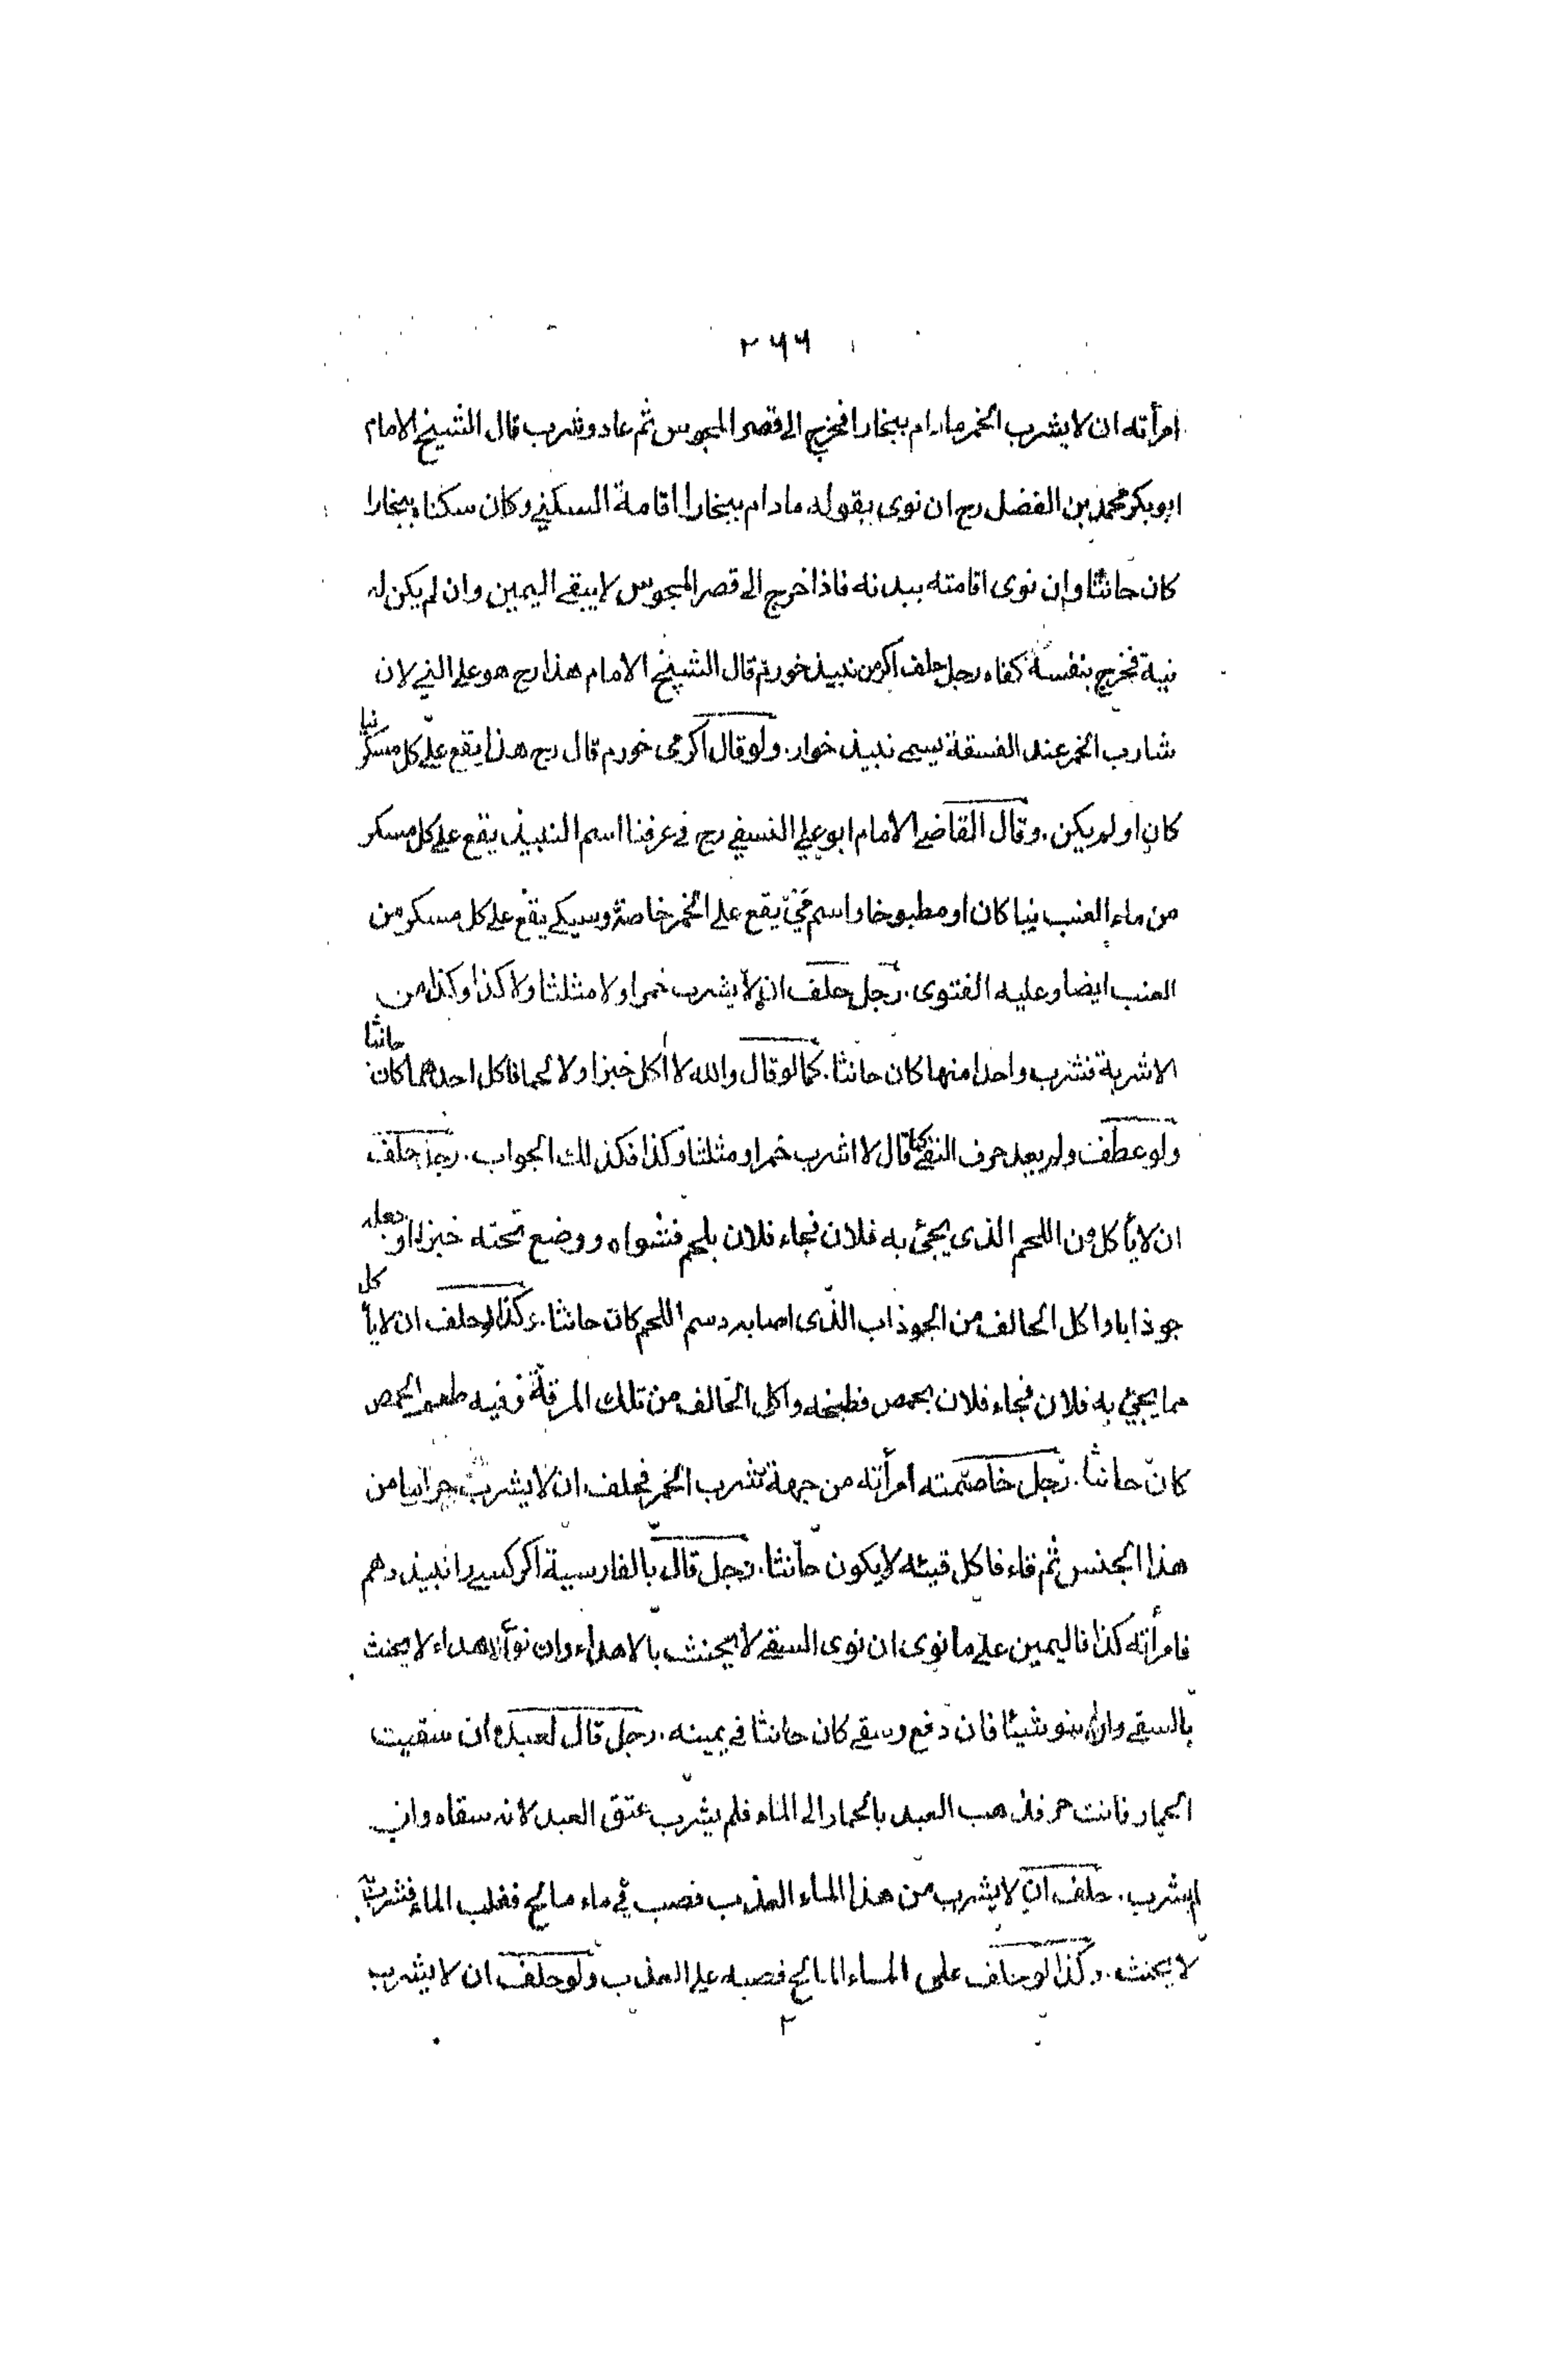 ٢٦٦
امرأته ان لا يشرب الخمر مادام ببخارا فخرج الى قصر المجوس ثم عاد وشرب قال الشيخ الامام
ابو بكر محمد بن الفضل رح ان نوى بقوله مادام ببخارا اقامة السكنى وكان سكناه ببخارا
كان حانثا وان نوى اقامته ببدنه فاذا خرج الى قصر المجوس لا يبقى اليمين وان لم يكن له
نية فخرج بنفسه كفاه رجل حلف اكر من نبيذ خورم قال الشيخ الامام هذا رح هو على الني لان
شارب الخمر عند الفسقة يسمى نبيذ خوار. ولو قال اكر مى خورم قال رح هذا يقع على كل مسكر نيا
كان او لم يكن. وقال القاضى الامام ابو على النسفى رح فى عرفنا اسم النبيذ يقع على كل مسكر
من ماء العنب نيا كان او مطبوخا واسم مى يقع على الخمر خاصة وسيكى يقع على كل مسكر من
العنب ايضا وعليه الفتوى. رجل حلف ان لا يشرب خمرا ولا مثلثا ولا كذا وكذا من
الاشربة فشرب واحدا منها كان حانثا. كما لو قال والله لا أكل خبزا ولا لحما فاكل احدهما كان حانثا
ولو عطف ولم يعد حرف النفى كما قال لا اشرب خمرا ومثلثا وكذا فكذلك الجواب. رجل حلف
ان لا يأكل من اللحم الذى يجئ به فلان فجاء فلان بلحم فشواه ووضع تحته خبزا او جعله
جوذابا واكل الحالف من الجوذاب الذى اصابه دسم اللحم كان حانثا. وكذا لو حلف ان لا يأكل
مما يجئ به فلان فجاء فلان بحمص فطبخه واكل الحالف من تلك المرقة وفيه طعم الحمص
كان حانثا. رجل خاصمته امرأته من جهة شرب الخمر فحلف ان لا يشرب من
هذا الجنس ثم قاء فاكل قيئه لا يكون حانثا. رجل قال بالفارسية اكر كسى را نبيذ دهم
فامرأته كذا فاليمين على ما نوى ان نوى السقى لا يحنث بالاهداء وان نوى الاهداء لا يحنث
بالسقى وان لم ينو شيئا فان دفع وسقى كان حانثا فى يمينه. رجل قال لعبده ان سقيت
الحمار فانت حر فذهب العبد بالحمار الى الماء فلم يشرب عتق العبد لانه سقاه وان
لم يشرب. حلف ان لا يشرب من هذا الماء العذب فصب فى ماء مالح فغلب الماء فشربه
لا يحنث. وكذا لو حلف على الماء المالح فصبه على العذب ولو حلف ان لا يشرب
٢